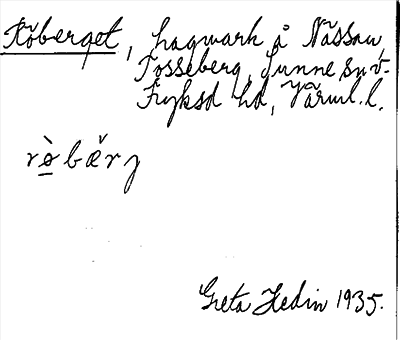 Röberget, hagmark å Nässan,
Tosseberg, Sunne sn o.
Fryksd hd, Värml. l.
rö̀bærj
Greta Hedin 1935.